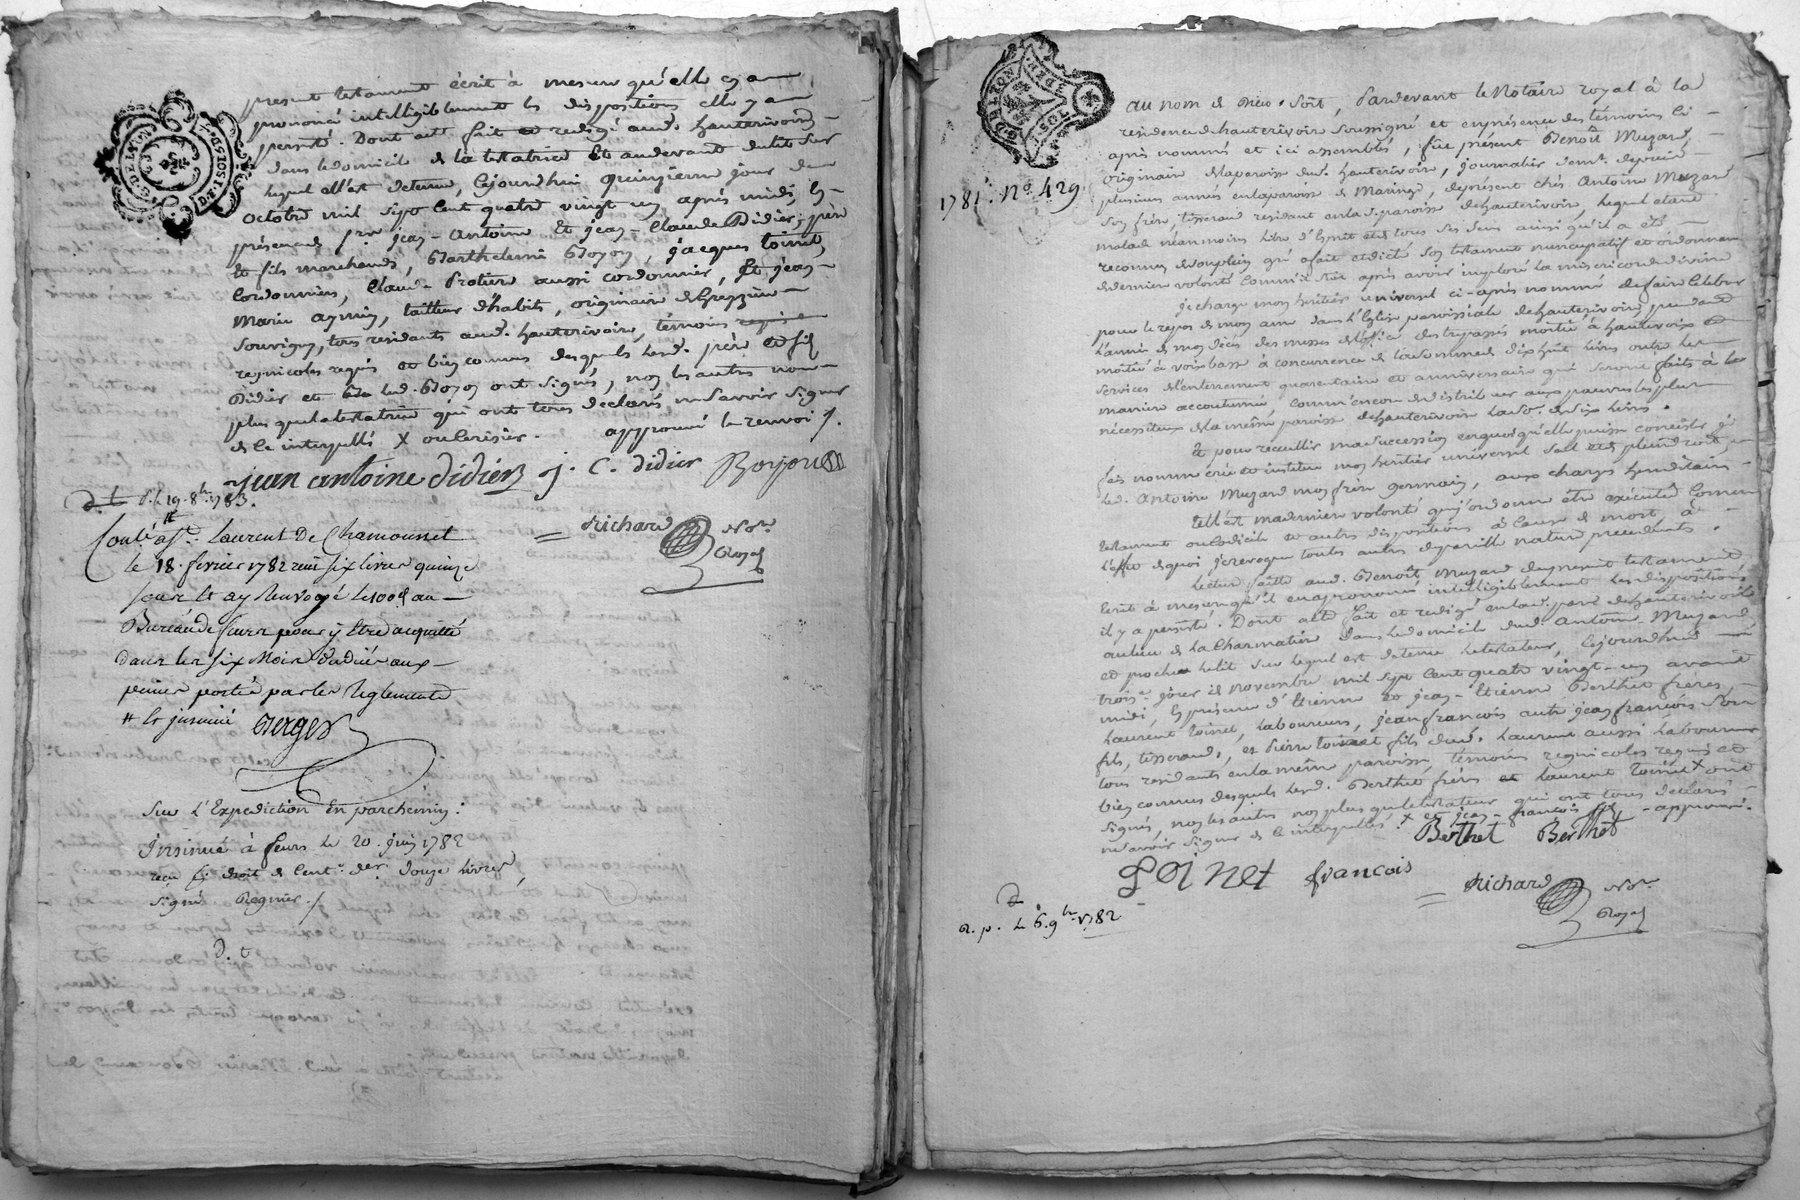 present testament écrit à mesure qu'elle en a
prononcé intelligiblement les dispositions elle y a
persisté. Dont acte fait et redigé aud. hauterivoire
dans le domicile de la testatrice et audevant du lit sur
lequel elle est detenue, cejourdhui quinzieme jour de
octobre mil sept cent quatre vingt un après midi, en
présence de jean-Antoine et jean-Claude Didier, père
et fils marchands, Barthelemi Boyon, jacques toinet,
Cordonniers, Claude Protiere aussi cordonnier, et jean-
Marie aymin, tailleur d'habits, originaire de
Souvigny, tous residants aud. hauterivoire, témoins
regnicoles requis et bien connus desquels lesd. père et fils
Didier et led. Boyon ont signés, non les autres non-
plus que la testatrice qui ont tous declarés ne savoir signer
de ce interpellés X ou cerisier. approuvé le renvoi /.
jean antoine didier j. C. didier Boyon
D. t. d. le 19. 8bre 1783.
= Richard Nore
Royal
Contlé à St. Laurent De Chamousset
le 18. fevrier 1782 reçu six livres quinze
sous et ay renvoyé le 100e au
Bureau de feurs pour y Etre acquitté
dans les six Mois dudécés aux
peines portées par les Reglements
# et insinué Berger
Sur l'Expedition En parchemin:
Insinué à feurs le 20. juin 1782
reçu pr. droit de Cente. der. Douze livres,
Signé Regnier./
D. t
G. DE LYON
1781. No. 429
au nom de Dieu. Soit, Pardevant le Notaire royal à la
residence de hauterivoire soussigné et en présence des témoins ci-
après nommés et ici assemblés, fût présent Benoît Muzard,
originaire de la paroisse dud. hauterivoire, journalier demt. depuis
plusieurs années en la paroisse de Maringe, de présent chés Antoine Muzard
son frère, tisserand residant en lad. paroisse de hauterivoire, lequel etant
malade néanmoins libre d'Esprit et de tous ses sens ainsi qu'il a été
reconnu de son plein gré a fait et dicté son testament nuncupatif et ordonnance
de derniere volonté comme s'ensuit après avoir imploré la misericorde divine
je charge mon heritier universel ci-après nommé de faire Celebrer
pour le repos de mon ame dans l'Eglise paroissiale de hauterivoire, pendant
l'année de mon décès des messes de l'office des trepassés moitié à haute voix et
moitié à voix basse à concurrence de la somme de dix huit livres outre les
services d'enterrement quarantaine et anniversaire qui seront faits à la
maniere accoutumée, comm'encore de distribuer aux pauvres les plus
nécessiteux de la même paroisse de hauterivoire la so. de six livres.
Et pour recueillir ma succession en quoi qu'elle puisse consister j'ai
fais nomme crée et institue mon heritier universel seul et de plein droit,
led. Antoine Muzard mon frère germain, aux charges hereditaires
telle est ma derniere volonté que j'ordonne etre executée comme
testament ou codicile et autres dispositions à cause de mort à
l'effet de quoi je revoque toutes autres de pareille nature precedentes.
Lecture faitte aud. Benoît Muzard du present testament
Ecrit à mesure qu'il en a prononcé intelligiblement les dispositions
il y a persisté. Dont acte fait et redigé en lad. parr. de hauterivoire
au lieu de la Charmatiere dans le domicile dud. Antoine Muzard
et proche le lit sur lequel est detenu le testateur, Cejourdhui
troise. jour de novembre mil sept cent quatre vingt-un avant
midi, En présence d'Etienne et jean-Etienne Berthet frères,
Laurent toinet, Laboureurs, jean françois autre jean françois son
fils, tisserands, et Pierre toinet fils dud. Laurent aussi Laboureur
tous residants en la même paroisse, témoins regnicoles requis et
bien connus desquels lesd. Berthet frères et Laurent toinet X ont
signés, non les autres non plus que le testateur qui ont tous declarés
ne savoir signer de ce interpellés X et jean-françois fils - approuvé.
Berthet Berthet
toinet francois
= Richard Nore
Royal
D
a. p. le 6. 9bre 1782